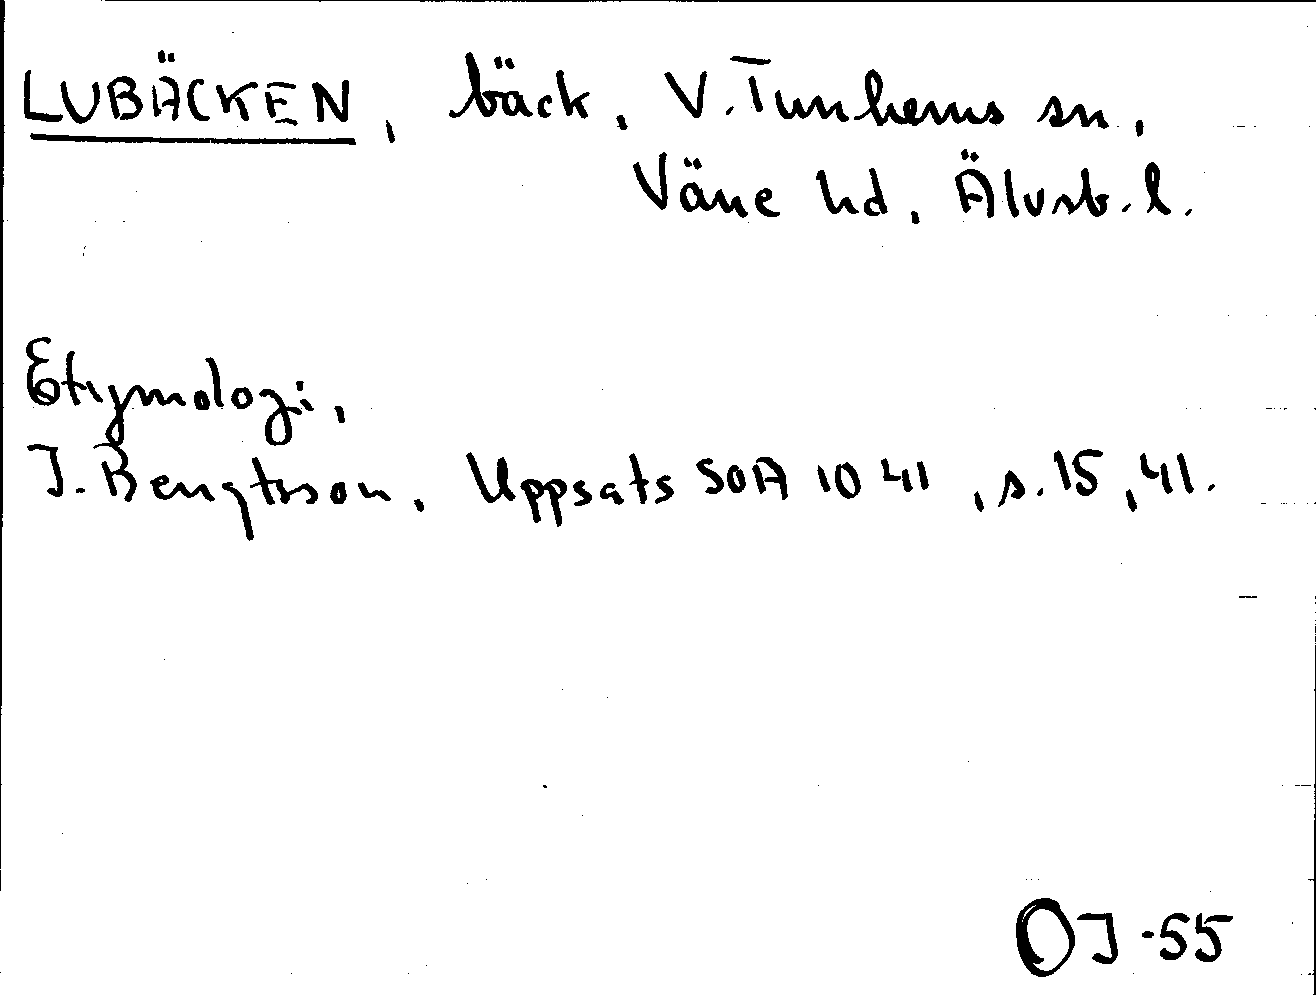 LUBÄCKEN, bäck, V. Tunhems sn,
Väne hd, Älvsb. l.
Etymologi,
J. Bengtsson, Uppsats SOA 1041, s. 15, 41.
OJ -55